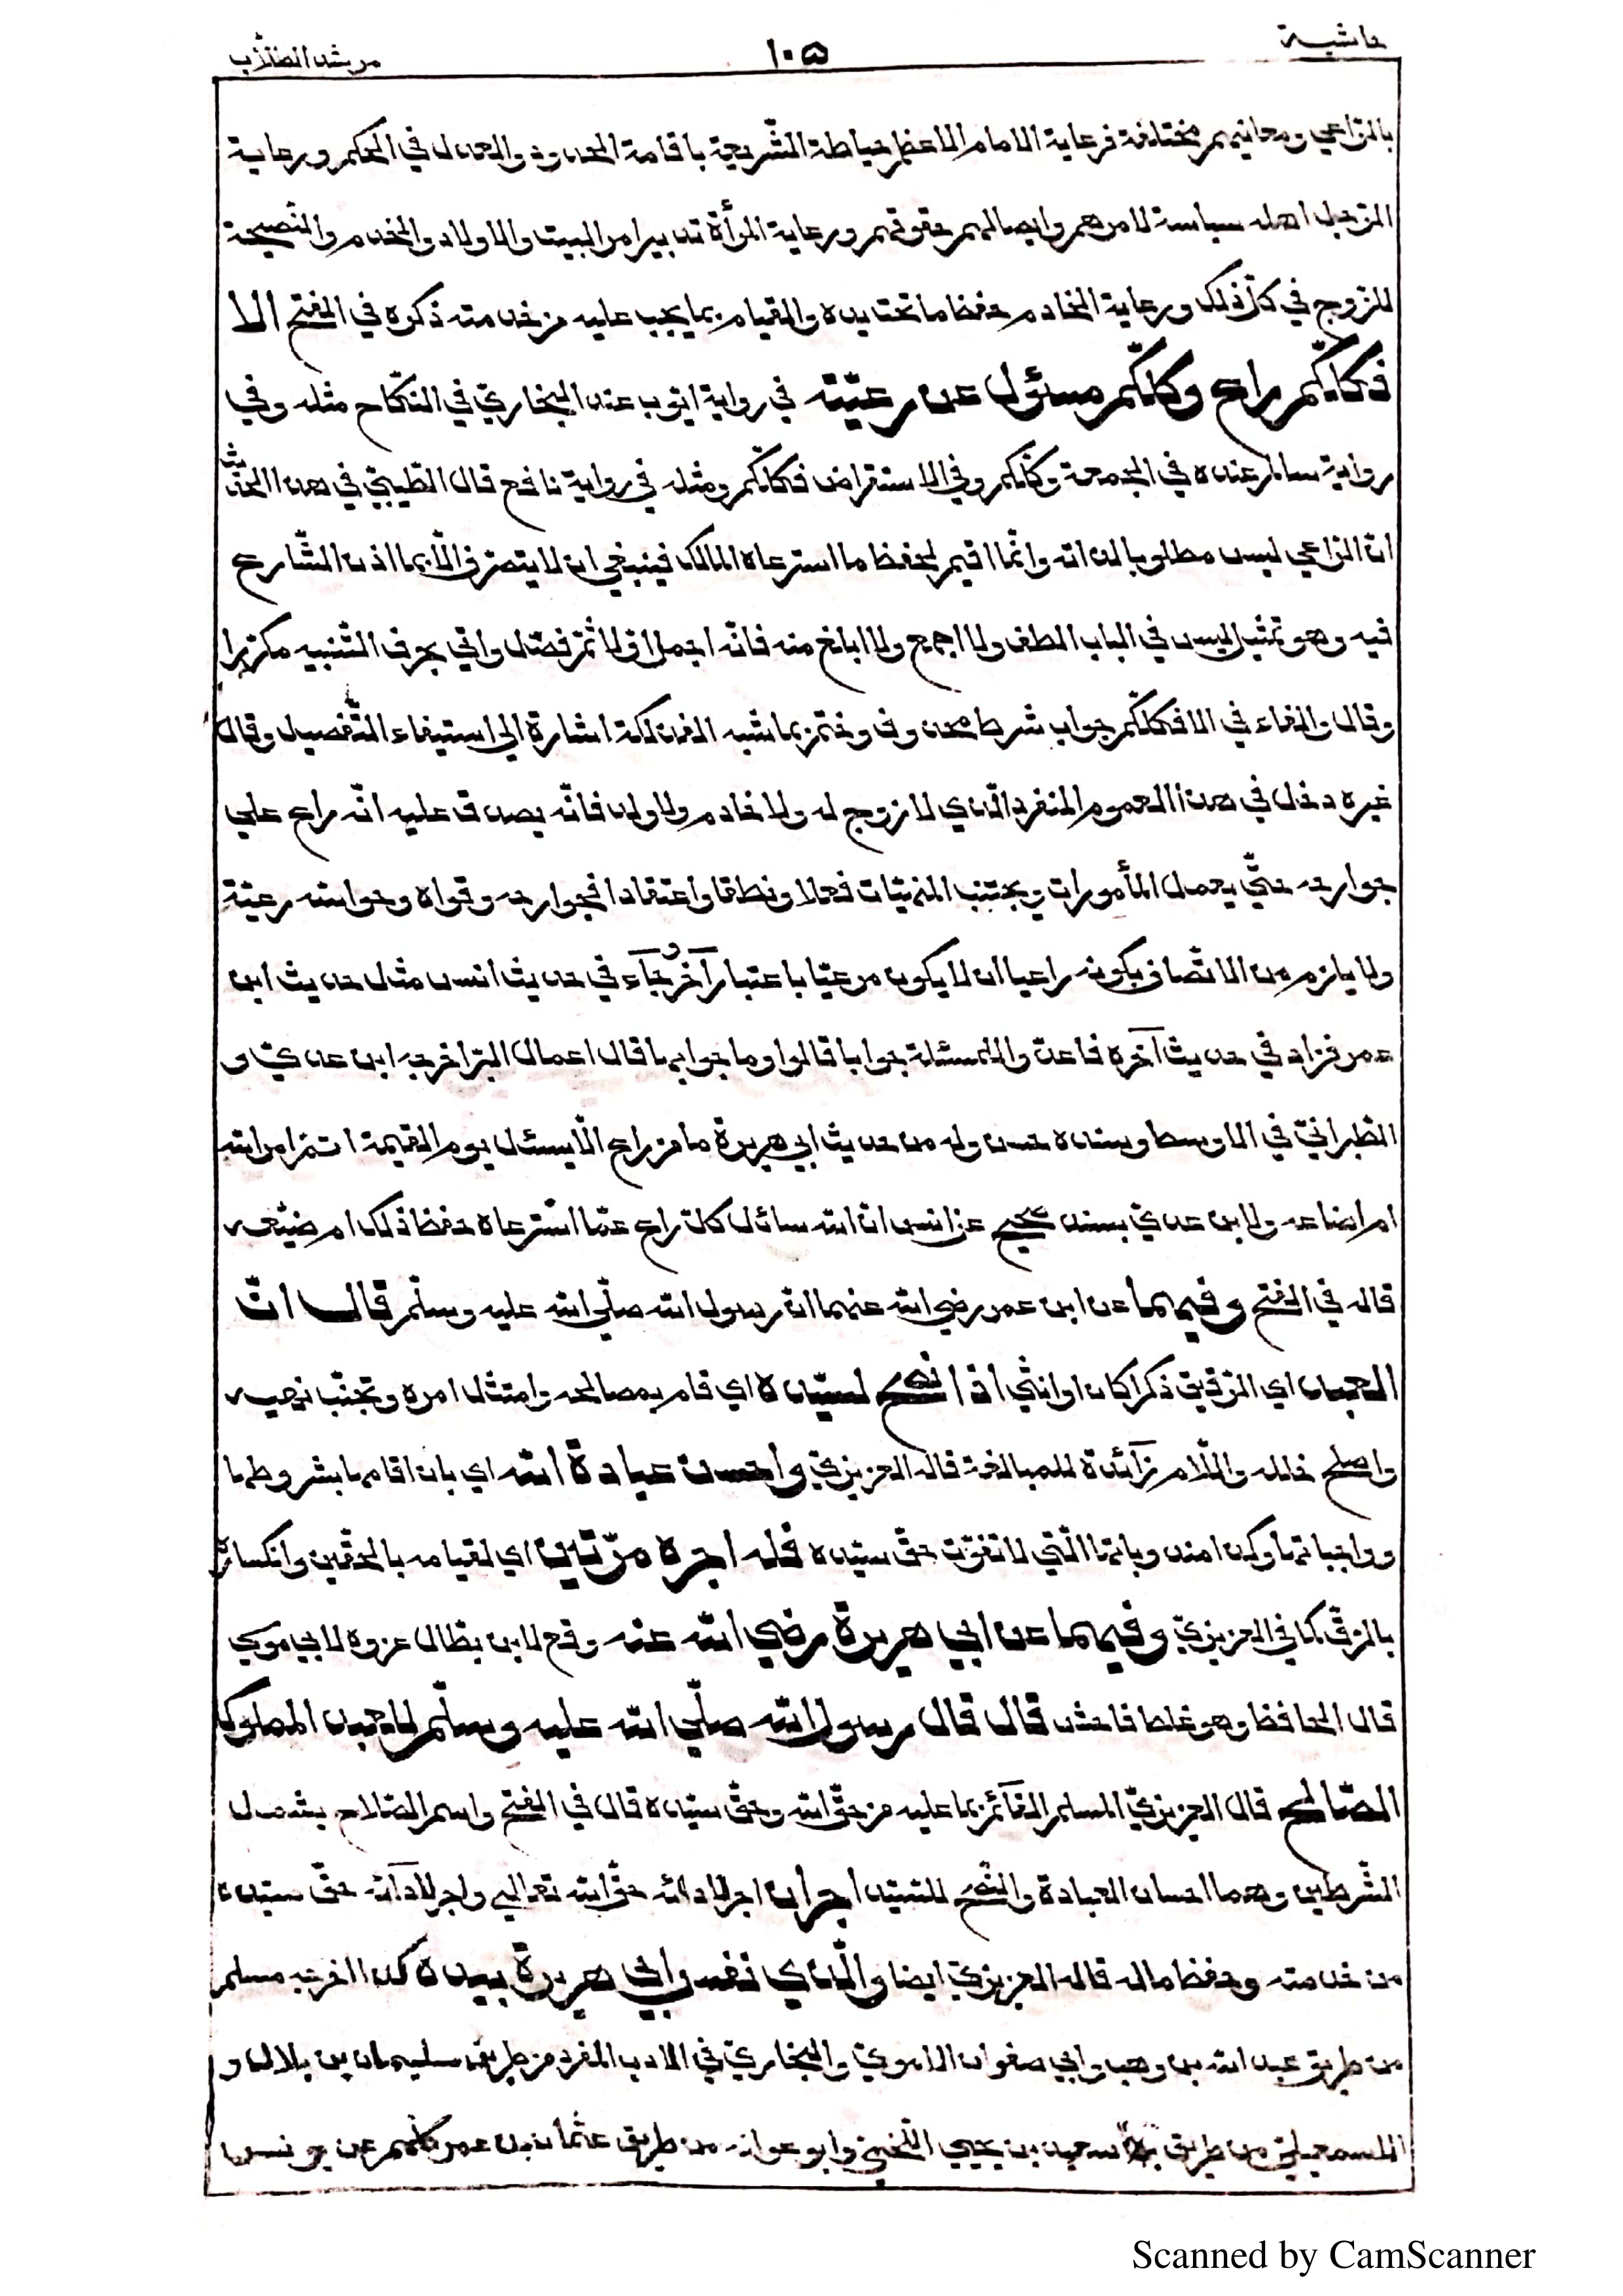 حاشية
١٠٥
مرشد الطلّاب
بالرّاعي ومعانيهم مختلفة فرعاية الامام الاعظم حياطة الشّريعة باقامة الحدود والعدل في الحكم ورعاية
الرّجل اهله سياسة لامرهم وايصالهم حقوقهم ورعاية المرأة تدبير امر البيت والاولاد والخدم والنّصيحة
للزوج في كلّ ذلك ورعاية الخادم حفظ ما تحت يده والقيام بما يجب عليه من خدمته ذكره في الفتح الا
فكلّكم راع وكلّكم مسئول عن رعيّته في رواية ايّوب عند البخاريّ في النّكاح مثله وفي
رواية سالم عنده في الجمعة وكلّكم وفي الاستقراض فكلّكم ومثله في رواية نافع قال الطّيبيّ في هذا الحديث
انّ الرّاعي ليس مطلوبا لذاته وانّما اقيم لحفظ ما استرعاه المالك فينبغي ان لا يتصرّف الّا بما اذن الشّارع
فيه وهو تمثيل ليس في الباب الطف ولا اجمع ولا ابلغ منه فانّه اجمل اوّلا ثمّ فصّل واتي بحرف التّنبيه مكرّرا
وقال والفاء في الا فكلّكم جواب شرط محذوف وختم بما شبه الفذلكة اشارة الي استيفاء التّفصيل وقال
غيره دخل في هذا العموم المنفرد الّذي لا زوج له ولا خادم ولا ولد فانّه يصدق عليه انّه راع علي
جوارحه حتّي يعمل المأمورات ويجتنب المنهيّات فعلا ونطقا واعتقادا فجوارحه وقواه وحواسّه رعيّة
ولا يلزم من الاتّصاف بكونه راعيا ان لا يكون مرعيّا باعتبار آخر وجآء في حديث انس مثل حديث ابن
عمر فزاد في حديث آخره فاعدّوا للمسئلة جوابا قالوا وما جوابها قال اعمال البرّ اخرجه ابن عديّ و
الطّبرانيّ في الاوسط وسنده حسن وله من حديث ابي هريرة ما من راع الّا يسئل يوم القيمة اقام امر الله
ام اضاعه ولابن عديّ بسند صحيح عن انس انّ الله سائل كلّ راع عمّا استرعاه حفظ ذلك ام ضيّعه
قاله في الفتح وفيهما عن ابن عمر رضي الله عنهما انّ رسول الله صلّي الله عليه وسلّم قال انّ
العبد اي الرّقيق ذكرا كان او انثي اذا نصح لسيّده اي قام بمصالحه وامتثل امره وتجنّب نهيه
واصلح خلله واللّام زآئدة للمبالغة قاله العزيزيّ واحسن عبادة الله اي بان اقامها بشروطها
وواجباتها وكذا مندوباتها الّتي لا تفوّت حقّ سيّده فله اجره مرّتين اي لقيامه بالحقّين وانكساره
بالرّقّ كما في العزيزيّ وفيهما عن ابي هريرة رضي الله عنه وقع لابن بطّال عزوه لابي موسي
قال الحافظ وهو غلط فاحش قال قال رسول الله صلّي الله عليه وسلّم للعبد المملوك
الصّالح قال العزيزيّ المسلم القآئم بما عليه من حقّ الله وحقّ سيّده قال في الفتح واسم الصّلاح يشمل
الشّرطين وهما احسان العبادة والنّصح للسّيّد اجران اجر لادائه حقّ الله تعالي واجر لادآئه حقّ سيّده
من خدمته وحفظ ماله قاله العزيزيّ ايضا والّذي نفس ابي هريرة بيده كذا اخرجه مسلم
من طريق عبد الله بن وهب وابي صفوان الامويّ والبخاريّ في الادب المفرد من طريق سليمان بن بلال و
الاسمعيليّ من طريق سعيد بن يحيي اللّخميّ وابو عوانة من طريق عثمان بن عمر كلّهم عن يونس
Scanned by CamScanner